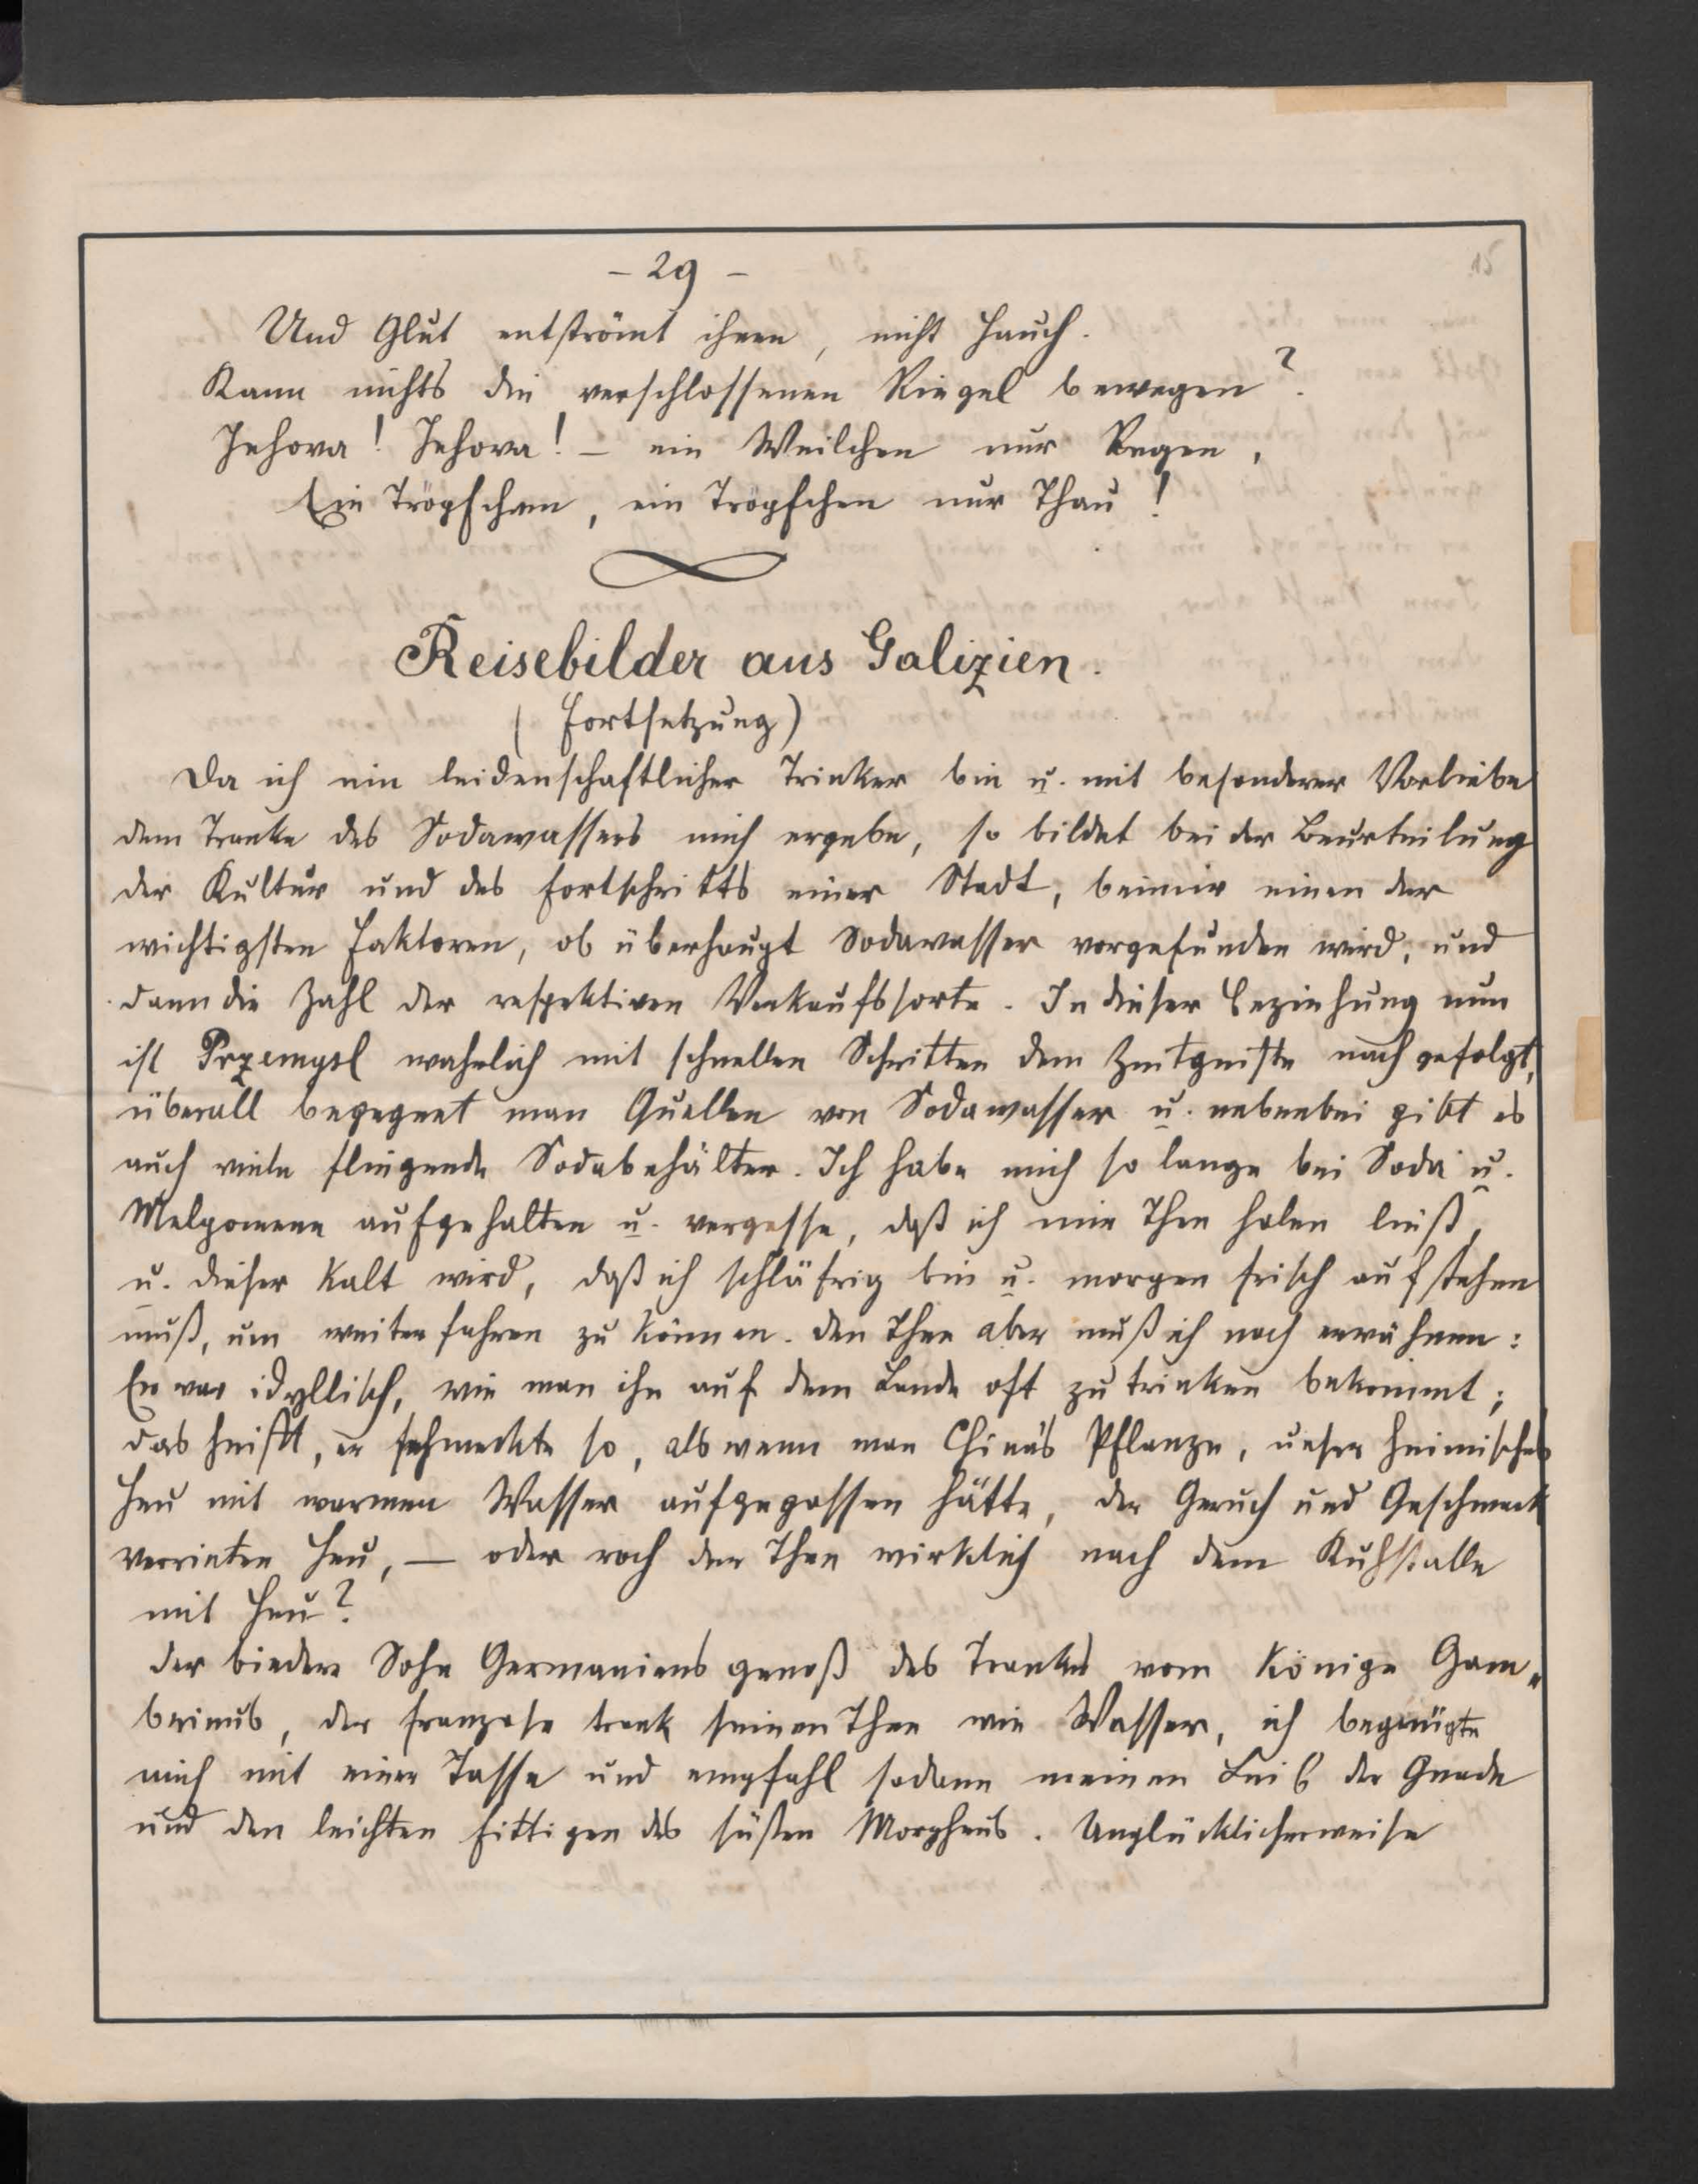 - 29 -
Und Glut entströmt ihnen, nicht Hauch.
Kann nichts die verschlossenen Riegel bewegen?
Jehova! Jehova! – ein Weilchen nur Regen,
Ein Tröpfchen, ein Tröpfchen nur Thau!
Reisebilder aus Galizien.
(Fortsetzung)
Da ich ein leidenschaftlicher Trinker bin u. mit besonderer Vorliebe
dem Tranke des Sodawassers mich ergebe, so bildet bei der Beurteilung
der Kultur und des Fortschritts einer Stadt, bei mir einen der
wichtigsten Faktoren, ob überhaupt Sodawasser vorgefunden wird, und
dann die Zahl der respektiven Verkaufsorte. In dieser Beziehung nun
ist Przemysl wahrlich mit schnellen Schritten dem Zeitgeiste nach gefolgt,
überall begegnet man Quellen von Sodawasser u. nebenbei gibt es
auch viele fliegende Sodabehälter. Ich habe mich so lange bei Soda u.
Melpomene aufgehalten u. vergesse, daß ich mir Thee holen ließ,
u. dieser kalt wird, daß ich schläfrig bin u. morgen frisch aufstehen
muß, um weiter fahren zu können. Den Thee aber muß ich noch erwähnen:
Er war idyllisch, wie man ihn auf dem Lande oft zu trinken bekommt;
das heißt, er schmeckte so, als wenn man China's Pflanze, unser heimisches
Heu mit warmen Wasser aufgegossen hätte, der Geruch und Geschmack
verrieten Heu, — oder roch der Thee wirklich nach dem Kuhstalle
mit Heu?
Der biedere Sohn Germaniens genoß des Trankes vom Könige Gam„
brinus, der Franzose trank seinen Thee wie Wasser, ich begnügte
mich mit einer Tasse und empfahl sodann meinen Leib der Gnade
und den leichten Fittigen des süßen Morpheus. Unglücklicherweise